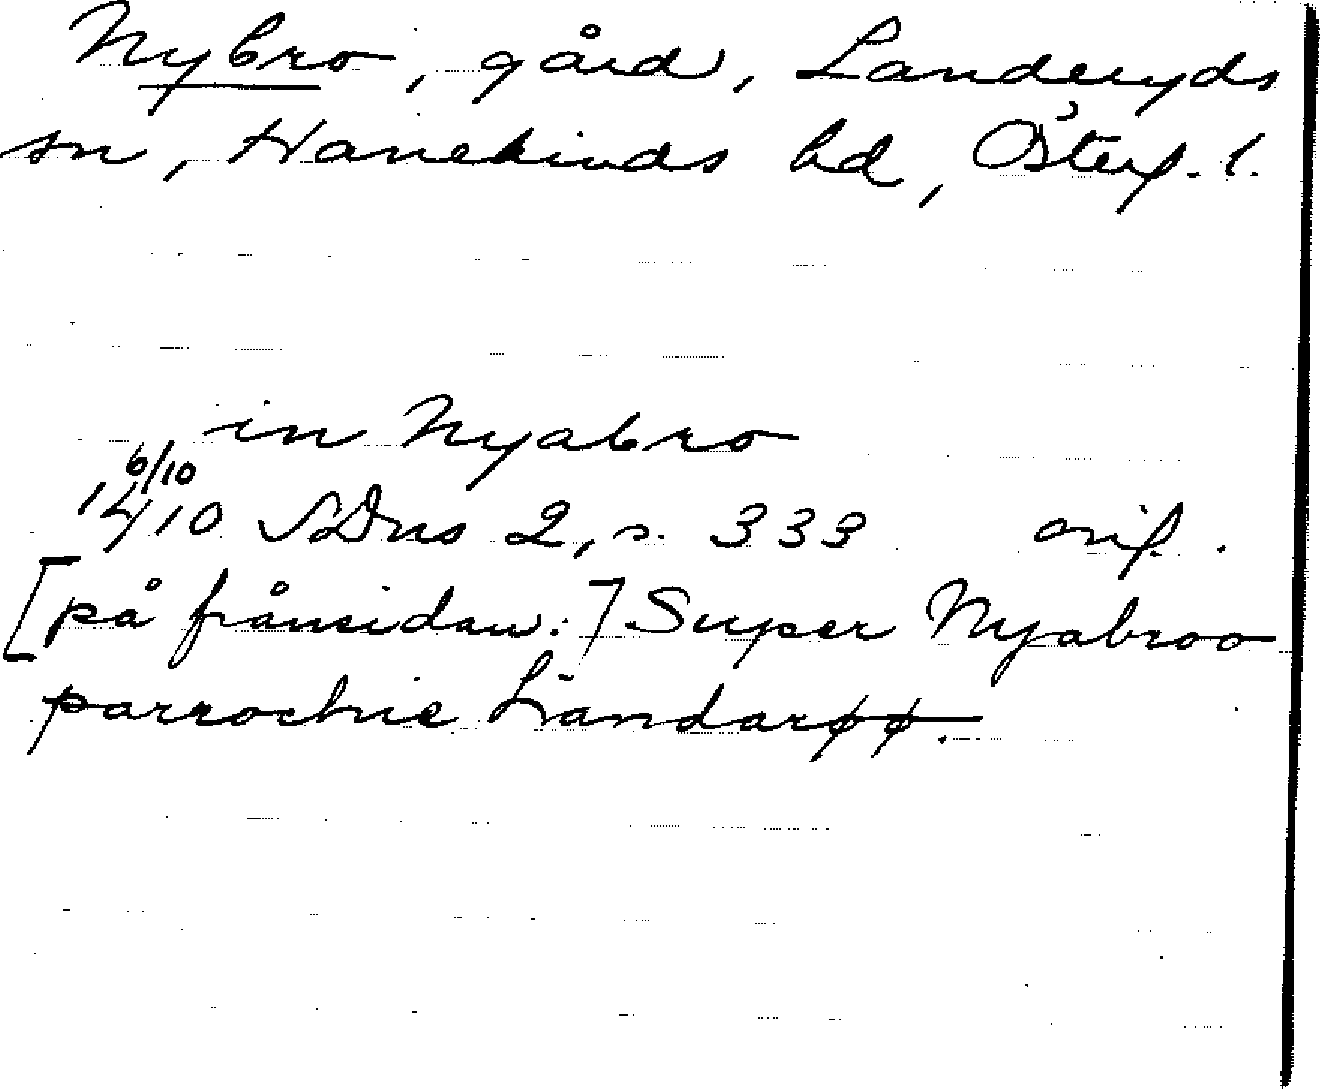 Nybro, gård, Landeryds
sn, Hanekinds hd, Österg. l.
in Nyabro
6/10
1410 SDns 2, s. 333 orig.
[på frånsidan:] Super Nyabroo
parrochie Landarøø.